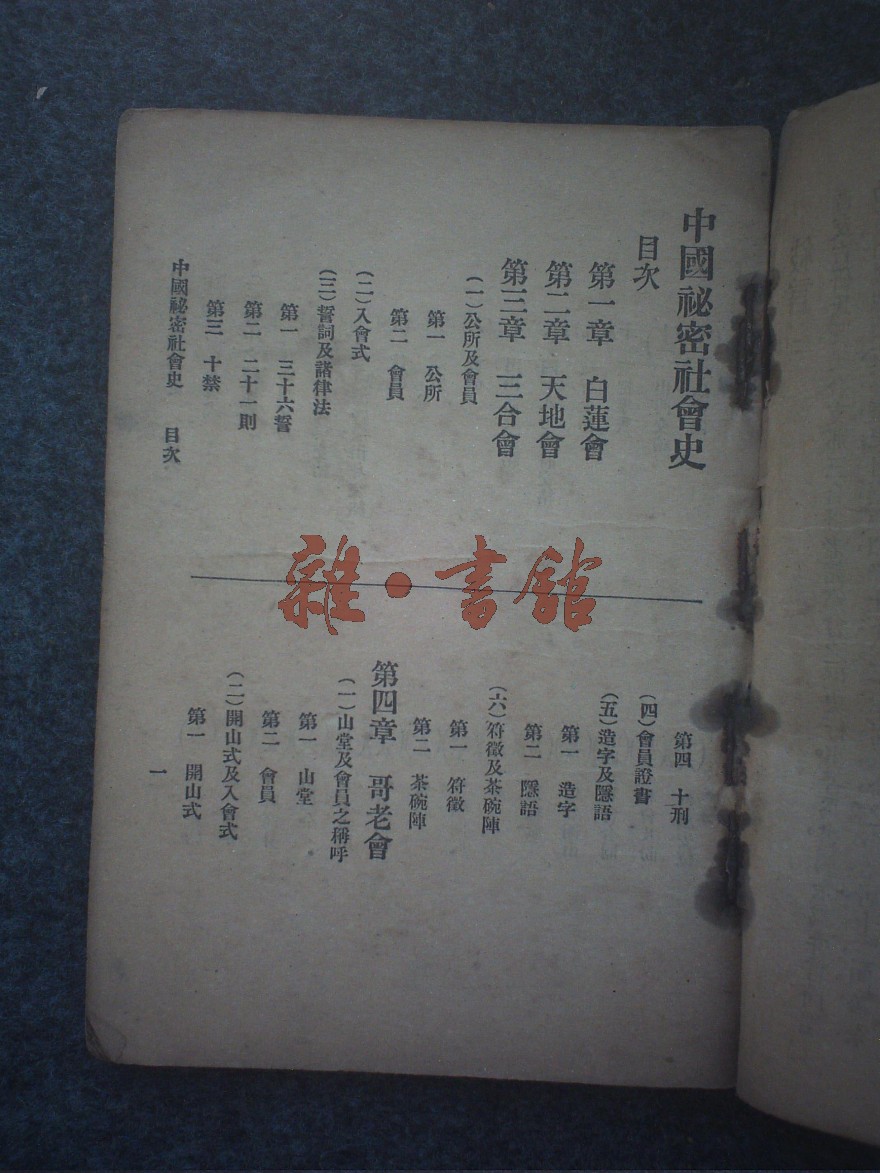 中國祕密社會史
目次
第一章 白蓮會
第二章 天地會
第三章 三合會
(一)公所及會員
第一 公所
第二 會員
(二)入會式
(三)誓詞及諸律法
第一 三十六誓
第二 二十一則
第三 十禁
第四 十刑
(四)會員證書
(五)造字及隱語
第一 造字
第二 隱語
(六)符徵及茶碗陣
第一 符徵
第二 茶碗陣
第四章 哥老會
(一)山堂及會員之稱呼
第一 山堂
第二 會員
(二)開山式及入會式
第一 開山式
中國祕密社會史 目次
一
雜·書館